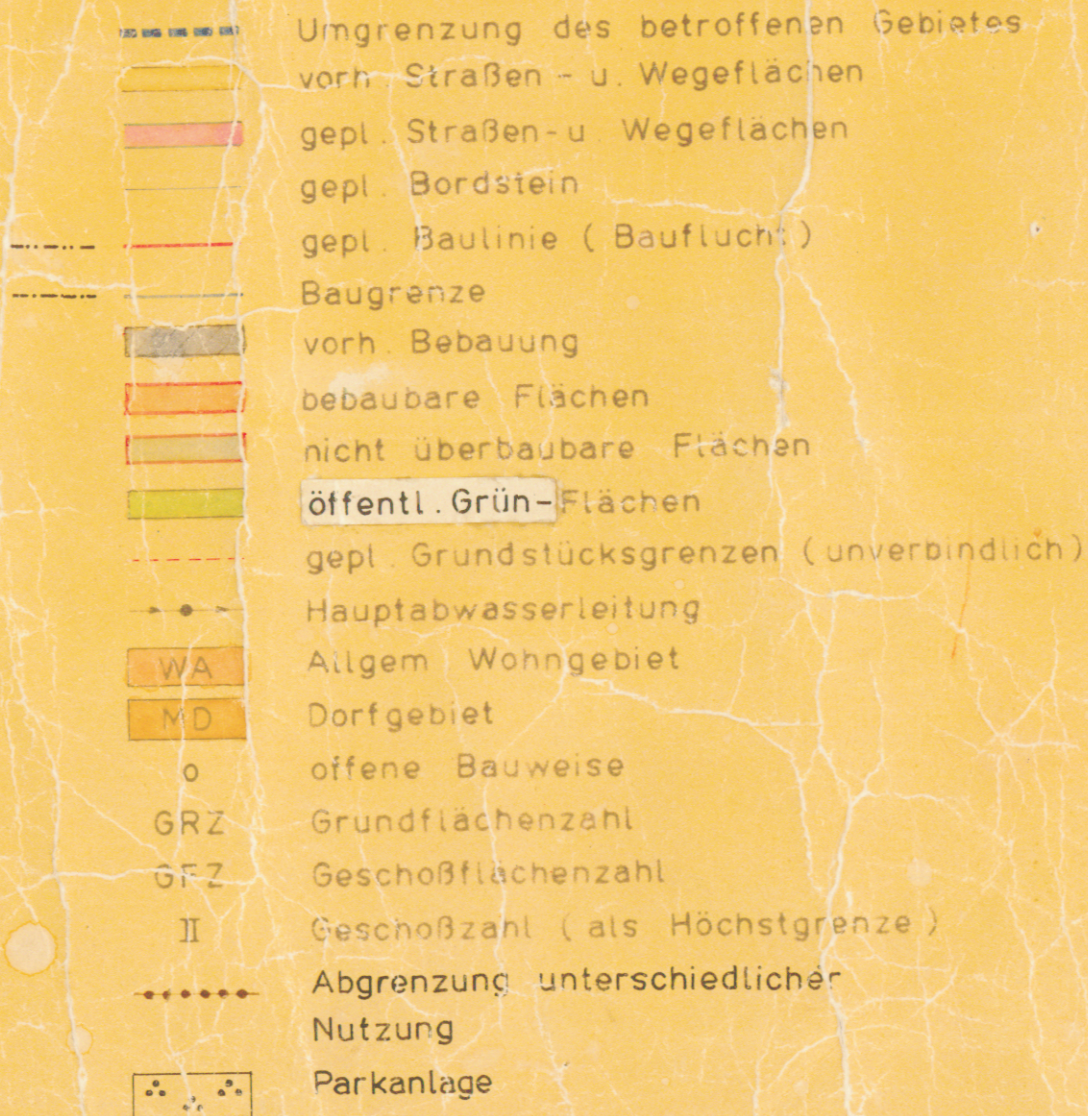 Umgrenzung des betroffenen Gebietes
vorh. Straßen - u. Wegeflächen
gepl. Straßen - u. Wegeflächen
gepl. Bordstein
gepl. Baulinie ( Bauflucht )
Baugrenze
vorh. Bebauung
bebaubare Flächen
nicht überbaubare Flächen
öffentl. Grün-Flächen
gepl. Grundstücksgrenzen ( unverbindlich )
Hauptabwasserleitung
WA Allgem Wohngebiet
MD Dorfgebiet
o offene Bauweise
GRZ Grundflächenzahl
GFZ Geschoßflächenzahl
II Geschoßzahl ( als Höchstgrenze )
Abgrenzung unterschiedlicher
Nutzung
Parkanlage